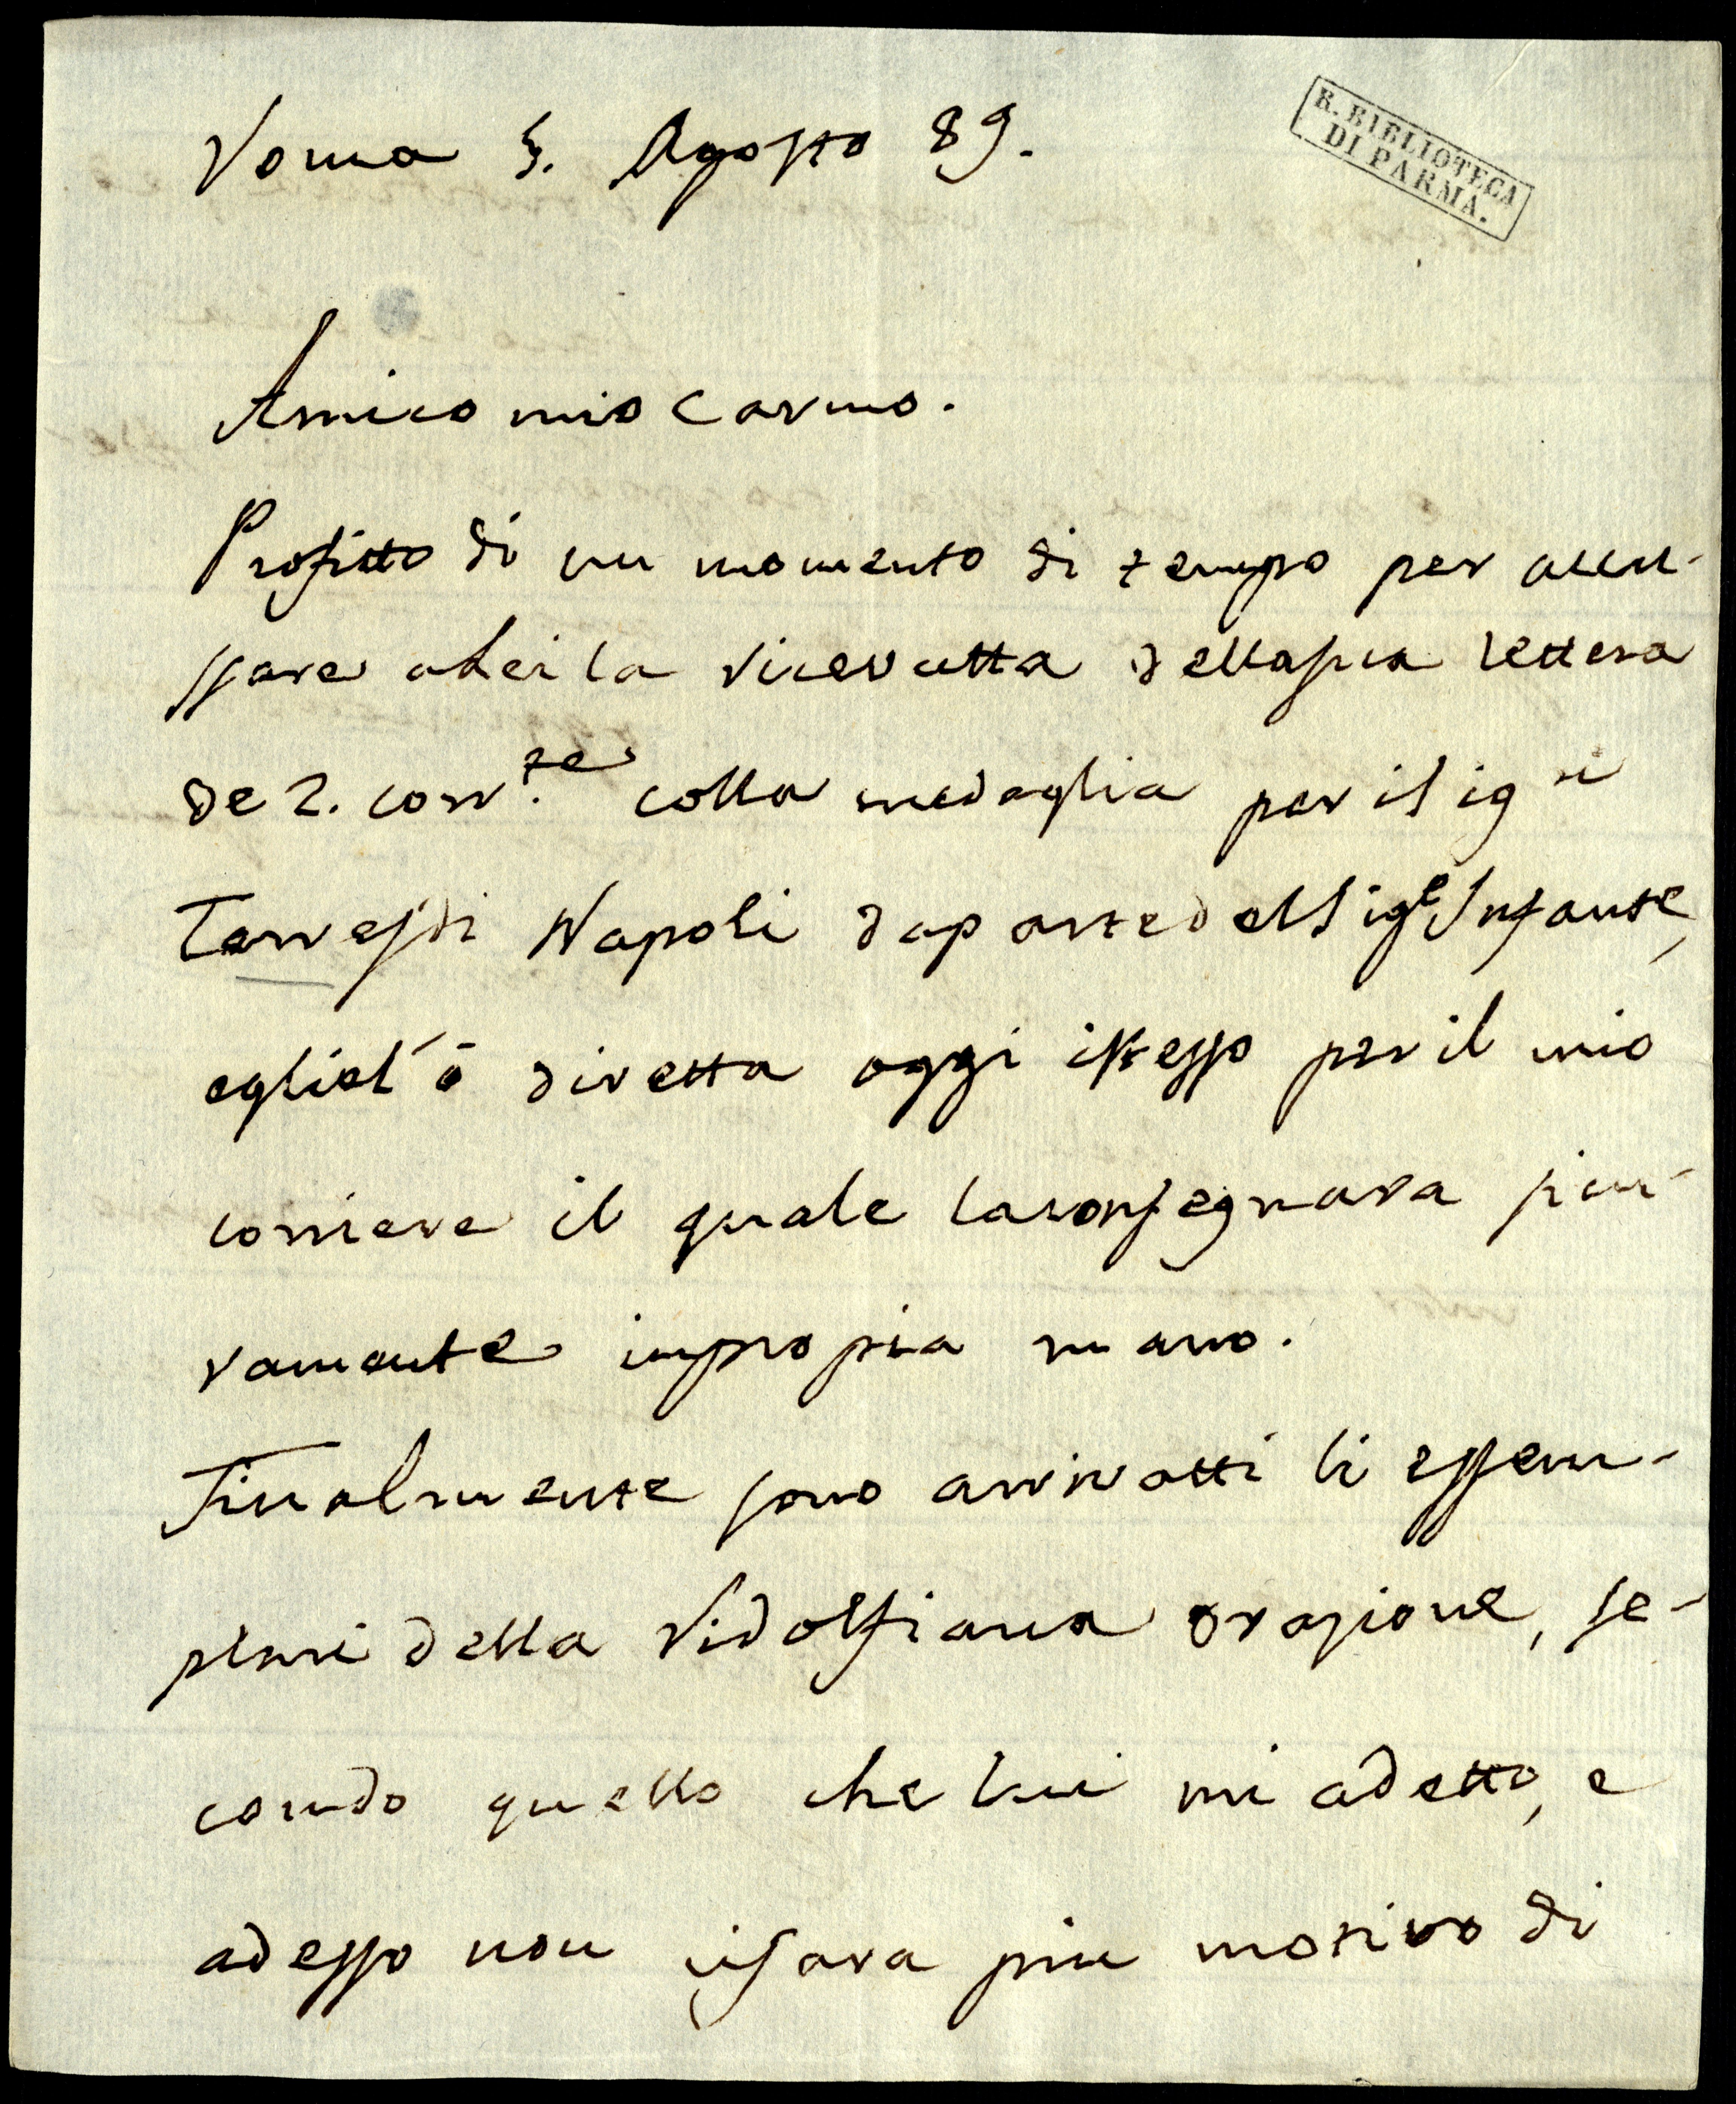 Roma 5. Agosto 89.
R. BIBLIOTECA
DI PARMA.
Amico mio carmo.
Profitto di un momento di tempo per accu-
ssare a Lei la ricevutta della sua lettera
de 2. corr.te colla medaglia per il sigre
Torres di Napoli da parte del Sige Infante,
egliel'ò diretta oggi istesso per il mio
corriere il quale la consegnara sicu-
ramente in propia mano.
Finalmente sono arrivatti li essem-
plari della Ridolfiana orazione, se-
condo quello che lui mi a detto, e
adesso non ci sara piu motivo di